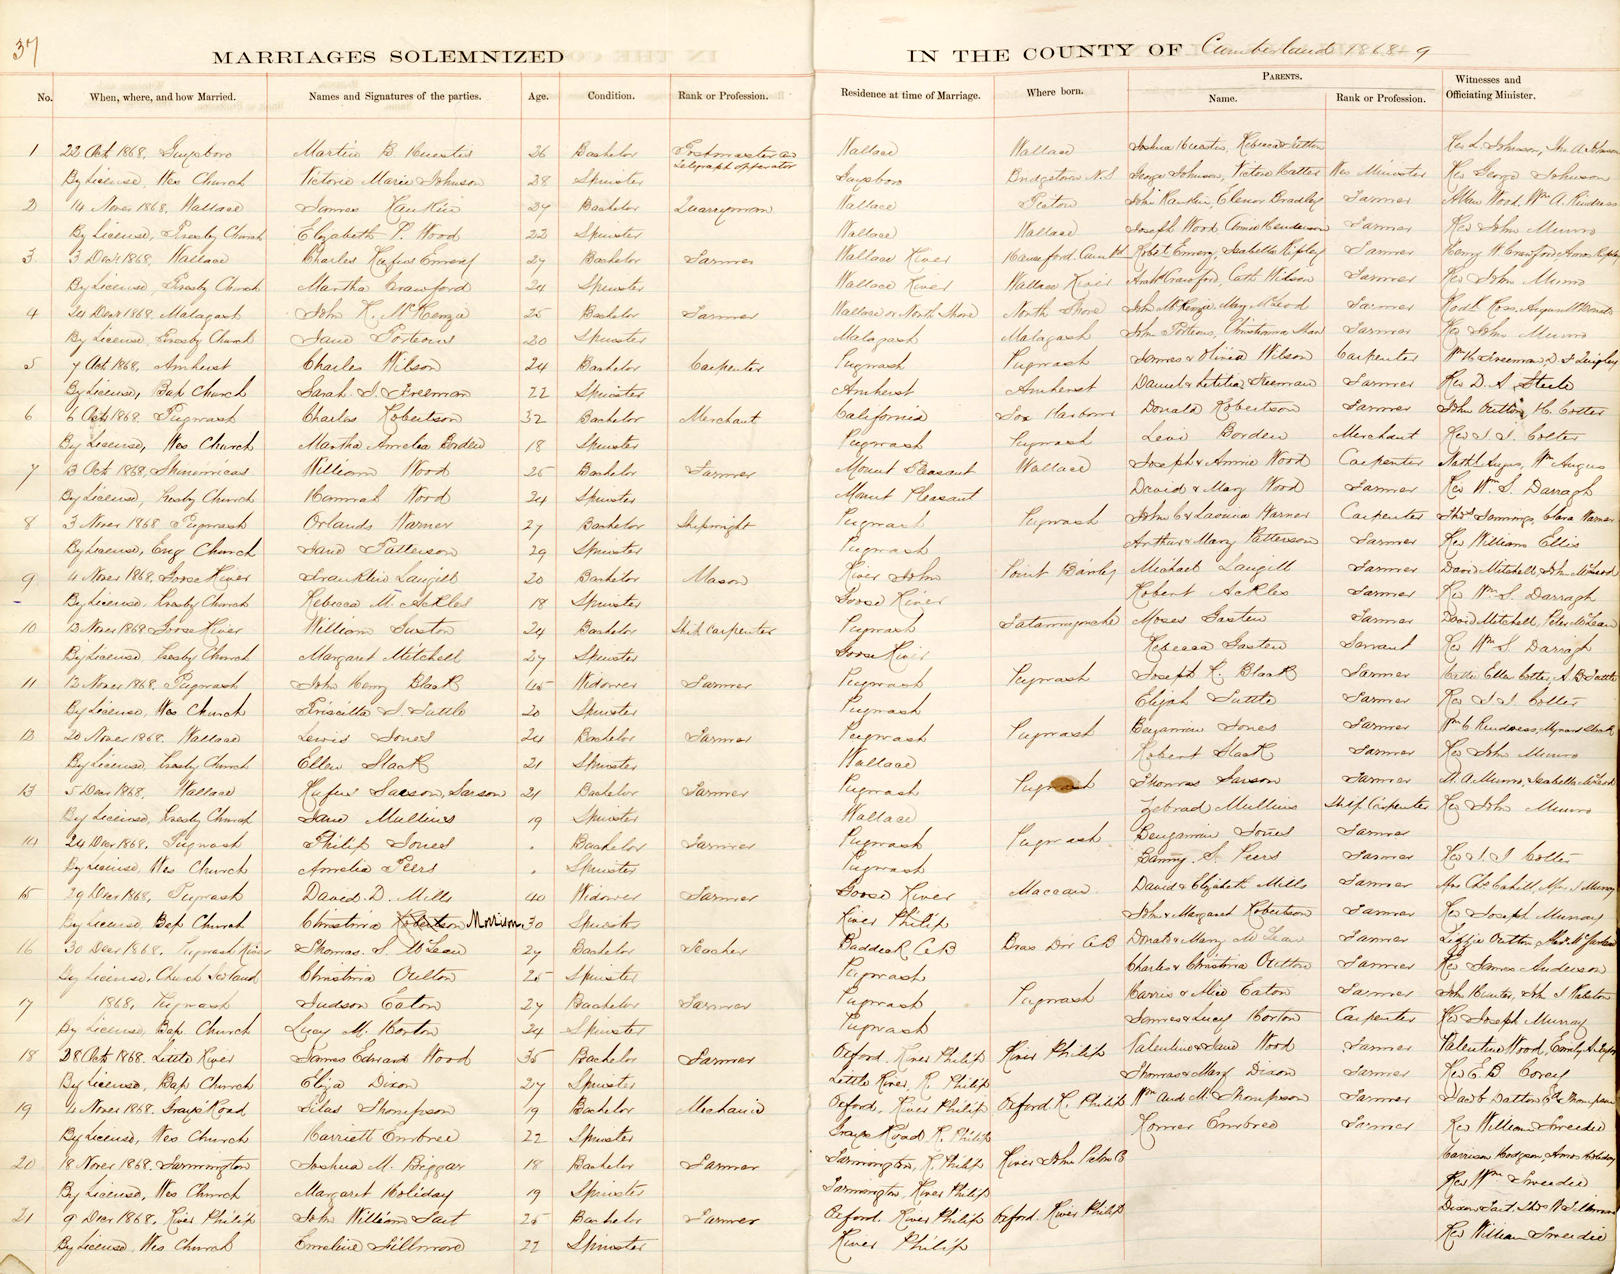 37
MARRIAGES SOLEMNIZED IN THE COUNTY OF Cumberland 1868-9
No. When, where, and how Married. Names and Signatures of the parties. Age. Condition. Rank or Profession. Residence at time of Marriage. Where born. PARENTS. Name. Rank or Profession. Witnesses and Officiating Minister.
1 22 Oct 1868, Guysboro Martin B. Huestis 26 Bachelor Postmaster and Telegraph opperator Wallace Wallace Joshua Huestis, Rebecca Rev L. Johnson, A Johnson
By License, Wes Church Victoria Marie Johnson 28 Spinster Guysboro Bridgetown N.S George Johnson, Victoria Wes Minister Rev George Johnson
2 14 Nover 1868, Wallace James Rankin 29 Bachelor Quarryman Wallace Picton John Rankin, Elenor Bradley Farmer Allen Wood, Wm A.
By License, Presby Church Elizabeth P. Wood 22 Spinster Wallace Wallace Joseph Wood Annie Henderson Farmer Rev John Munro
3 3 Decr 1868, Wallace Charles Rufus Emery 27 Bachelor Farmer Wallace River Robert Emery, Isabella Ripley Farmer Henry W. Crawford Amos Ripley
By License, Presby Church Martha Crawford 24 Spinster Wallace River Wallace River Crawford, Cath Wilson Farmer Rev John Munro
4 24 Decr 1868, Malagash John R. McKenzie 25 Bachelor Farmer Wallace or North Shore North Shore John McKenzie Mary McLeod Farmer Rodk Ross,
By License, Presby Church Jane Porteous 20 Spinster Malagash Malagash John Porteous, Christianna Farmer Rev John Munro
5 7 Oct 1868, Amherst Charles Wilson 24 Bachelor Carpenter Pugwash Pugwash James & Olivia Wilson Carpenter Wm H. Freeman, D F Quigley
By License, Bap Church Sarah J. Freeman 22 Spinster Amherst Amherst Daniel & Letitia Freeman Farmer Rev D. A. Steele
6 6 Oct 1868, Pugwash Charles Robertson 32 Bachelor Merchant California Fox Harbour Donald Robertson Farmer John Oulton, H. Colter
By License, Wes Church Martha Amelia Borden 18 Spinster Pugwash Pugwash Levi Borden Merchant Rev J. J. Colter
7 13 Oct 1868, Shinimicas William Wood 25 Bachelor Farmer Mount Pleasant Wallace Joseph & Annie Wood Carpenter Nathl Angus, Wm Angus
By License, Presby Church Hannah Wood 24 Spinster Mount Pleasant David & Mary Wood Farmer Rev Wm S. Darragh
8 3 Nover 1868 Pugwash Orlando Warner 27 Bachelor Shipwright Pugwash Pugwash John C & Lavinia Warner Carpenter Thos Jennings, Clara Warner
By License, Eng Church Jane Patterson 29 Spinster Pugwash Arthur & Mary Patterson Farmer Rev William Ellis
9 4 Nover 1868, Goose River Franklin Langill 20 Bachelor Mason River John Point Michael Langill Farmer David Mitchell, John McLeod
By License, Presby Church Rebecca M. Ackles 18 Spinster Goose River Robert Ackles Farmer Rev Wm S. Darragh
10 12 Nover 1868 Goose River William Gaston 24 Bachelor Ship Carpenter Pugwash Tatamagouche Moses Gasten Farmer David Mitchell, Peter McLean
By License, Presby Church Margaret Mitchell 27 Spinster Goose River Rebecca Gasten Servant Rev Wm S. Darragh
11 12 Nover 1868, Pugwash John Henry Black 45 Widower Farmer Pugwash Pugwash Joseph R. Black Farmer Ellen Colter, A. B Tuttle
By License, Wes Church Priscilla J. Tuttle 20 Spinster Pugwash Elijah Tuttle Farmer Rev J J Colter
12 20 Nover 1868, Wallace Lewis Jones 24 Bachelor Farmer Pugwash Pugwash Benjamin Jones Farmer Wm C
By License, Presby Church Ellen Slack 21 Spinster Wallace Robert Slack Farmer Rev John Munro
13 5 Decr 1868, Wallace Rufus Sacson, Sarson 21 Bachelor Farmer Pugwash Pugwash Thomas Sarson Farmer M. A. Munro, Isabella McLeod
By License, Presby Church Jane Mullins 19 Spinster Wallace Mullins Ship Carpenter Rev John Munro
14 24 Decr 1868, Pugwash Philip Jones . Bachelor Farmer Pugwash Pugwash Benjamin Jones Farmer
By License Wes Church Amelia Peers . Spinster Pugwash S. Peers Farmer Rev J. J. Colter
15 29 Decr 1868, Pugwash David D. Mills 40 Widower Farmer Goose River Maccan David & Elizabeth Mills Farmer Mrs Chs Cahill, Mrs J Murray
By License Bap Church Christina Robertson Morrison 30 Spinster River Philip John & Margaret Robertson Farmer Rev Joseph Murray
16 30 Decr 1868, Pugwash River Thomas. S. McLean 27 Bachelor Teacher Baddeck C.B Bras Dor C.B Donald & Mary McLean Farmer Lizzie Oulton,
By License, Church Scotland Christina Oulton 25 Spinster Pugwash Charles & Christina Oulton Farmer Rev James Anderson
17 1868, Pugwash Judson Eaton 27 Bachelor Farmer Pugwash Pugwash Harris & Alice Eaton Farmer John Hunter, John J
By License, Bap. Church Lucy M. Horton 24 Spinster Pugwash James & Lucy Horton Carpenter Rev Joseph Murray
18 28 Oct 1868, Little River James Edward Wood 35 Bachelor Farmer Oxford, River Philip River Philip Valentine & Jane Wood Farmer Valentine Wood, Emily
By License, Bap Church Eliza Dixon 27 Spinster Little River, R. Philip Thomas & Mary Dixon Farmer Rev E. B. Corey
19 4 Nover 1868, Grays Road Silas Thompson 19 Bachelor Mechanic Oxford, River Philip Oxford R. Philip Wm and M. Thompson Farmer Thompson
By License, Wes Church Harriett Embree 22 Spinster Grays Road R. Philip Homer Embree Farmer Rev William Tweedie
20 18 Nover 1868, Farmington Joshua M. Biggar 18 Bachelor Farmer Farmington, R. Philip River John Harrison Hodgson, Amos Holiday
By License, Wes Church Margaret Holiday 19 Spinster Farmington, River Philip Rev Wm Tweedie
21 9 Decr 1868, River Philip John William Tait 25 Bachelor Farmer Oxford, River Philip Oxford, River Philip Dixon Tait,
By License, Wes Church Emeline Fillmore 22 Spinster River Philip Rev William Tweedie